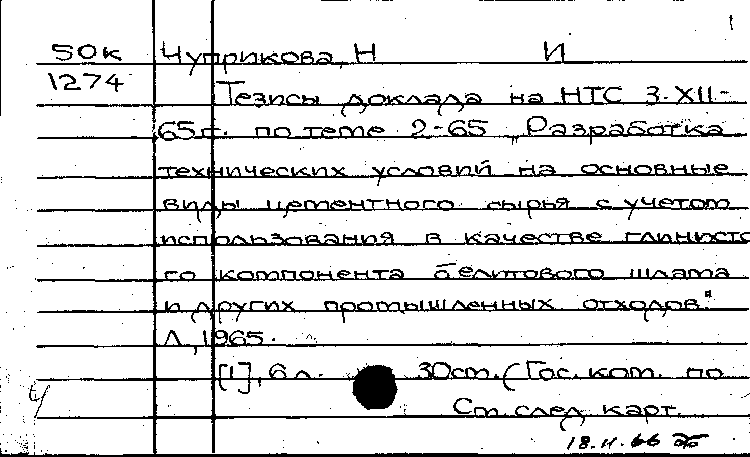 1
50к Чуприкова, Н И
1274 Тезисы доклада на НТС 3-XII-
65г. по теме 2-65 „Разработка
технических условий на основные
виды цементного сырья с учетом
использования в качестве глинисто
го компонента белитового шлама
и других промышленных отходов."
Л., 1965.
[1], 6 л. 30см. (Гос. ком. по
См. след. карт.
18.11.66